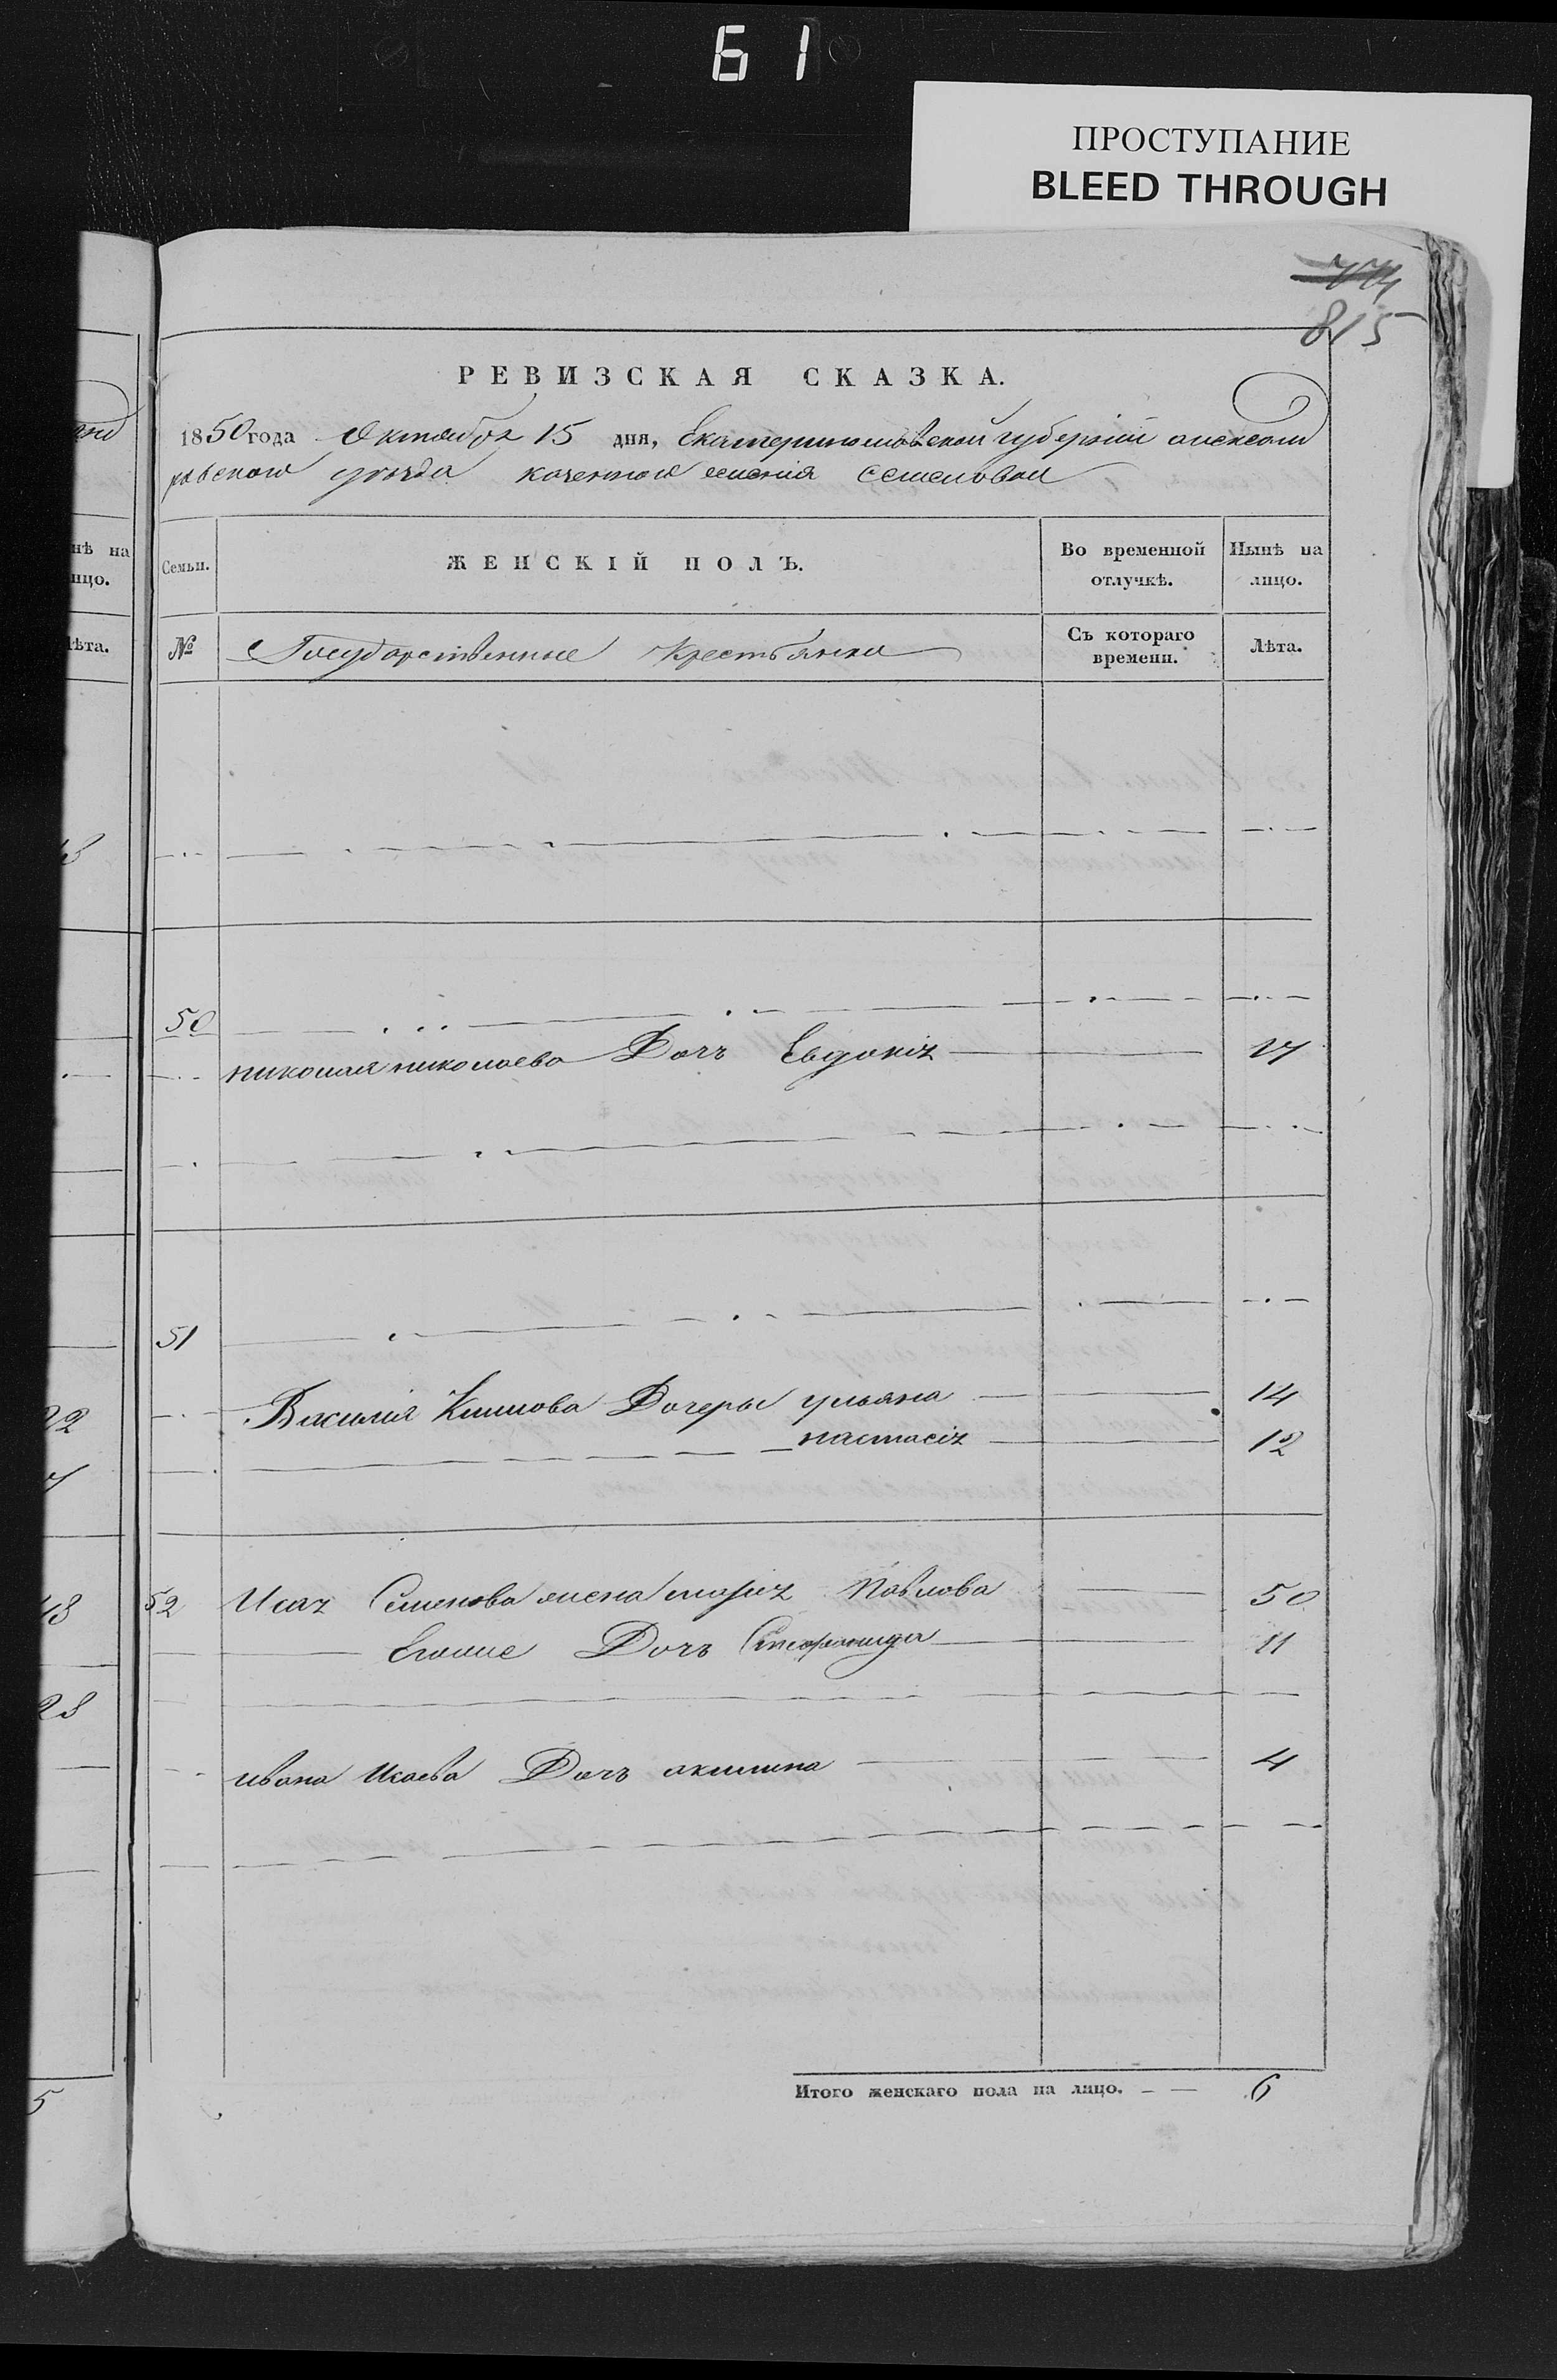 61
ПРОСТУПАНИЕ
BLEED THROUGH
774
815
РЕВИЗСКАЯ СКАЗКА.
1850 года Октября 15 дня, Екатеринославской губерніи александ
ровского уезда казенного селенія Семеновки
Семьи.
ЖЕНСКІЙ ПОЛЪ.
Во временной отлучкѣ.
Нынѣ на лицо.
№
Государственные Крестьянки
Съ котораго времени.
Лѣта.
50
николая николаева Дочь Евдокія 17
51
Василія Климова Дочеры ульяна 14
настасія 12
52 Исая Семенова жена марія Павлова 50
Егоже Дочь Степанида 11
ивана Исаева Дочь акилина 4
Итого женскаго пола на лицо. 6
нѣ на
ицо.
ѣта.
22
5